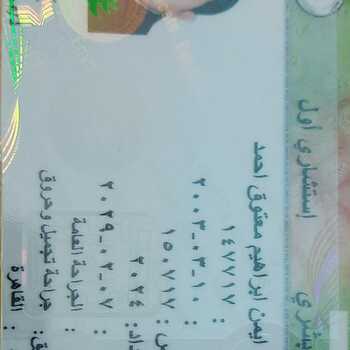 بشري
إستشاري أول
ايمن ابراهيم معتوق احمد
: ١٤٧٧١٧
: ٢٠٠٣-٠٣-١٠
: ١٥٠٧١٧
: ٢٠٢٤
: ٢٠٢٩-٠٣-٠٧
: الجراحة العامة
: جراحة تجميل وحروق
: القاهرة